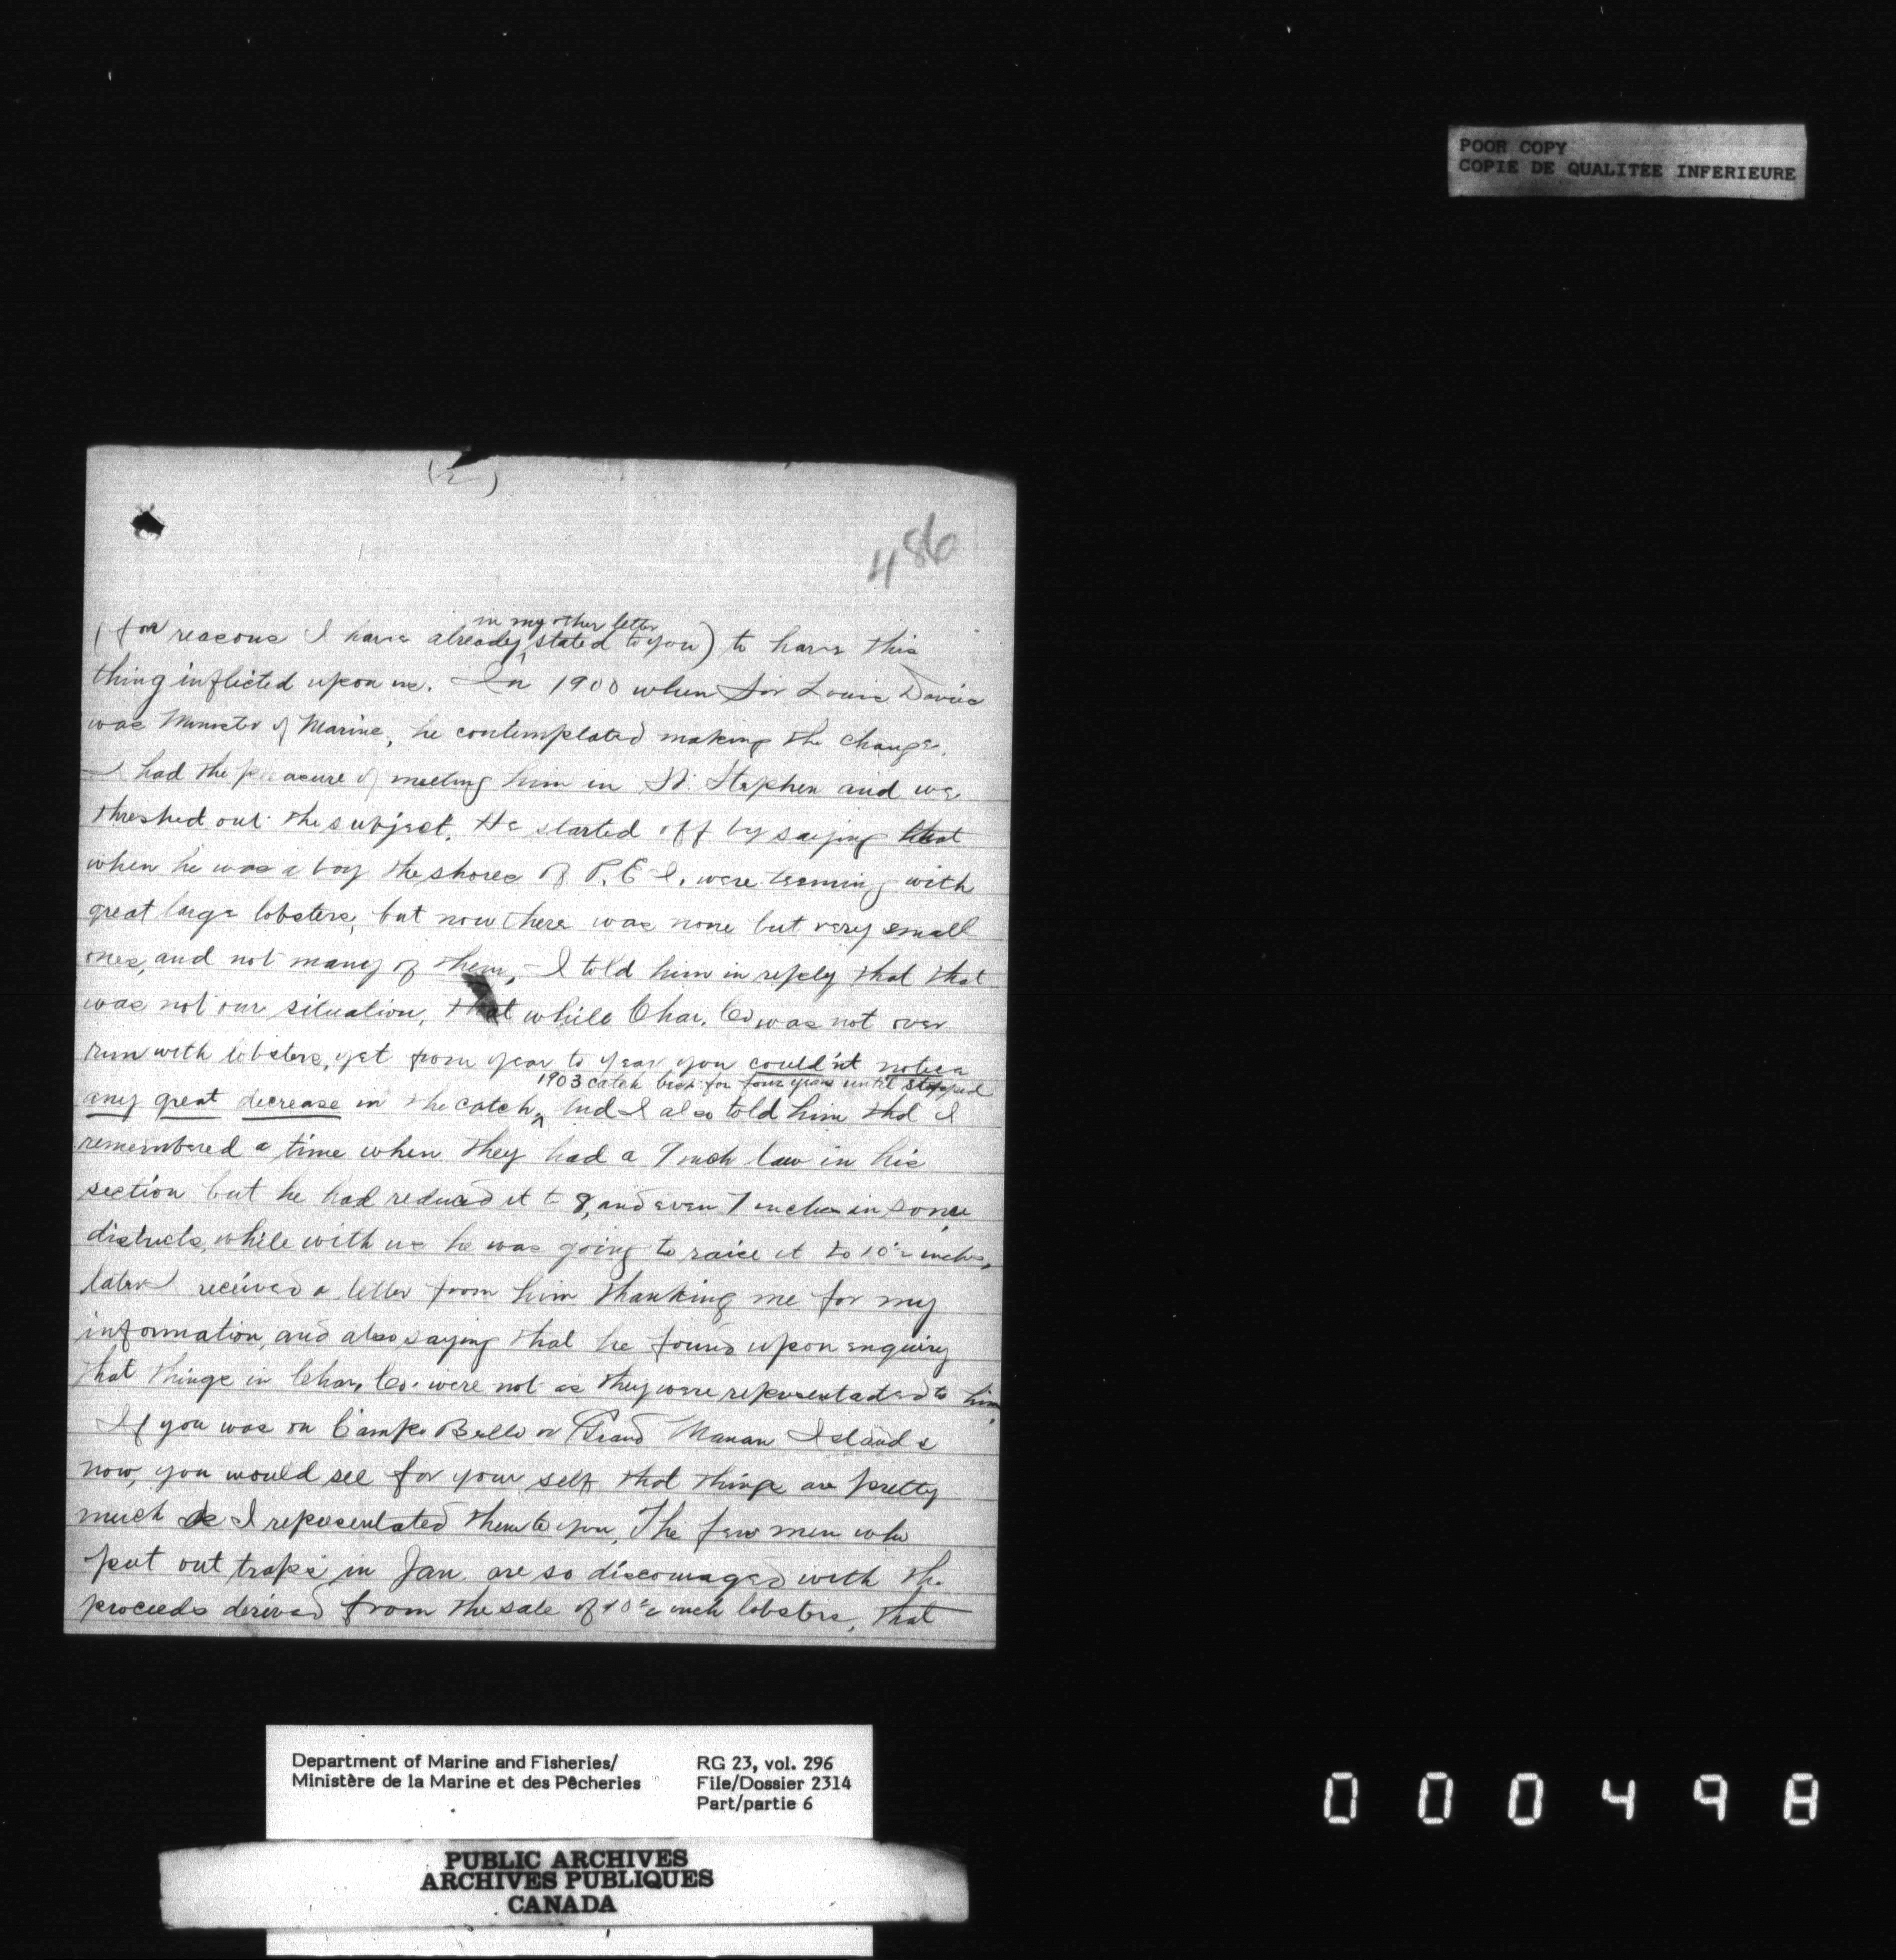 POOR COPY
COPIE DE QUALITEE INFERIEURE
(2)
486
in my other letter
(for reasons I have already stated to you) to have this
thing inflicted upon us. In 1900 when Sir Louis Davies
was Minister of Marine, he contemplated making the change.
I had the pleasure of meeting him in St. Stephen and we
threshed out the subject. He started off by saying that
when he was a boy the shores of P.E.I. were teeming with
great large lobsters, but now there was none but very small
ones, and not many of them, - I told him in reply that that
was not our situation, that while Char. Co was not over
run with lobsters, yet from year to year you couldn't notice
1903 catch best for four years until stopped
any great decrease in the catch, and I also told him that I
remembered a time when they had a 9 inch law in his
section but he had reduced it to 8, and even 7 inches in some
districts, while with us he was going to raise it to 10½ inches,
later I received a letter from him thanking me for my
information, and also saying that he found upon enquiry
that things in Char. Co. were not as they were representated to him.
If you was on Campo Bello or Grand Manan Islands
now, you would see for your self that things are pretty
much as I represented them to you. The few men who
put out traps in Jan. are so discouraged with the
proceeds derived from the sale of 10½ inch lobsters, that
Department of Marine and Fisheries/
Ministère de la Marine et des Pêcheries
RG 23, vol. 296
File/Dossier 2314
Part/partie 6
PUBLIC ARCHIVES
ARCHIVES PUBLIQUES
CANADA
000498